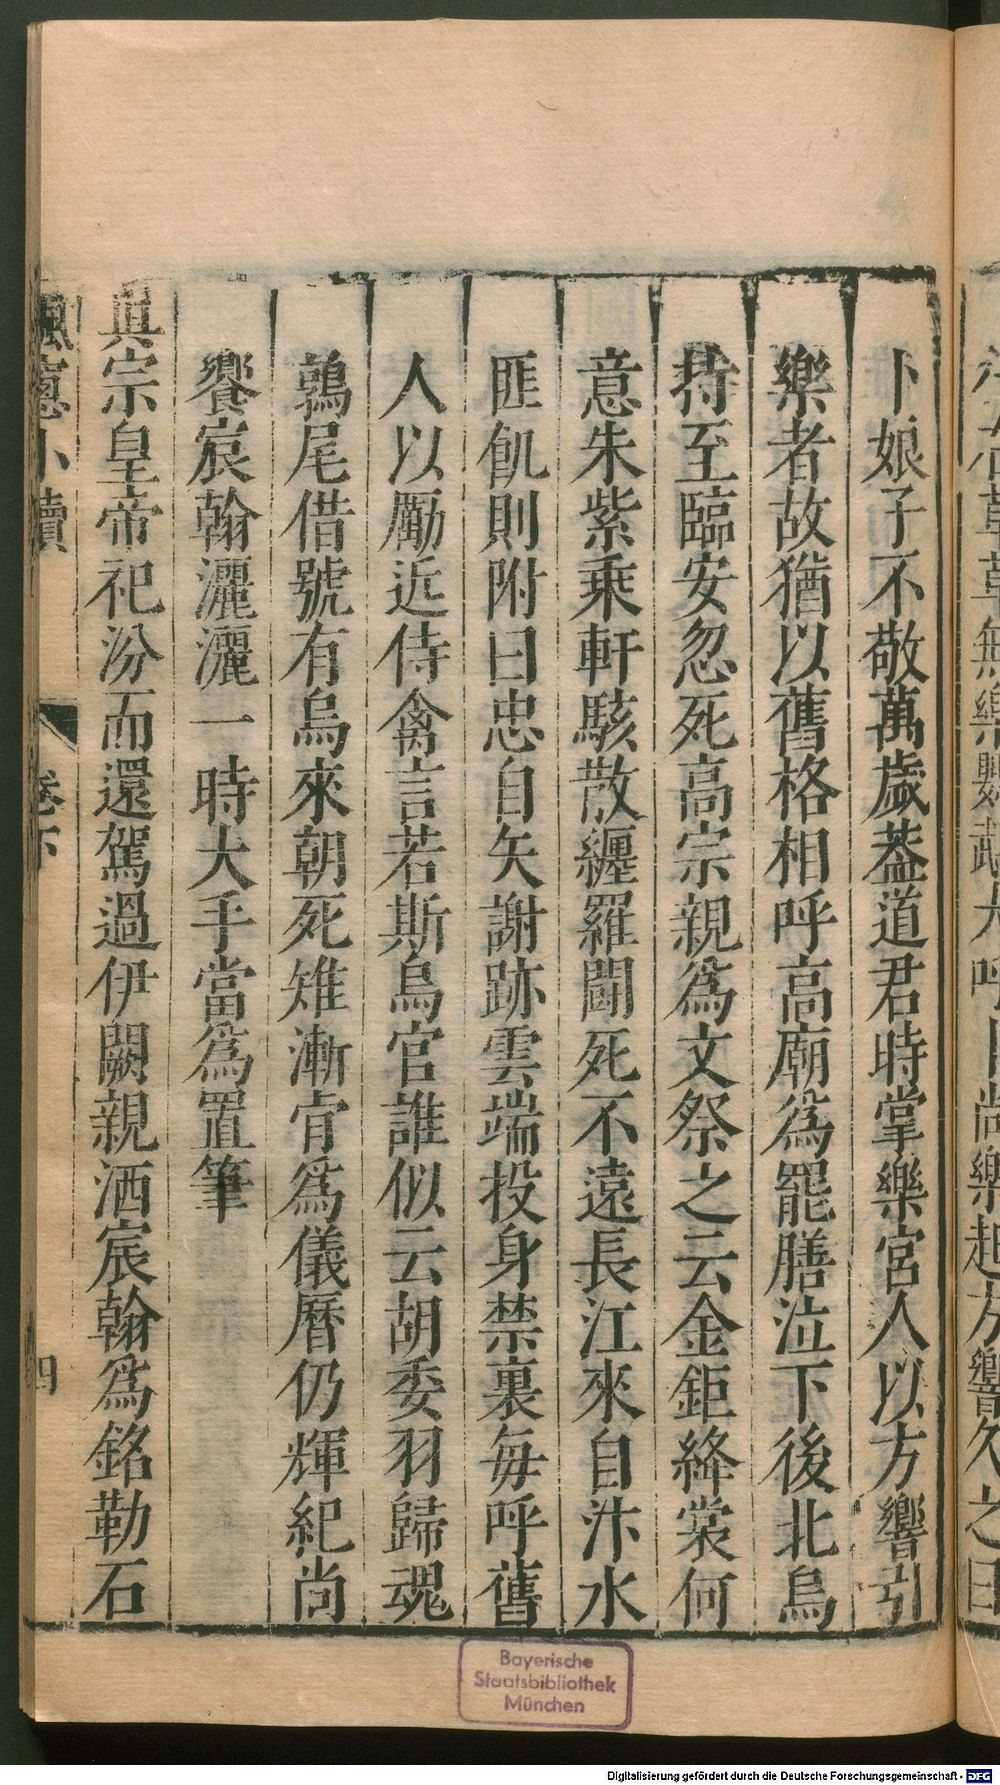 卜娘子不敬萬歲葢道君時掌樂宮人以方響引
樂者故猶以舊格相呼高廟爲罷膳泣下後北鳥
持至臨安忽死高宗親爲文祭之云金鉅絳裳何
意朱紫乘軒駭散纏羅鬪死不遠長江來自汴水
匪飢則附曰忠自矢謝跡雲端投身禁裏每呼舊
人以勵近侍禽言若斯鳥官誰似云胡委羽歸魂
鶉尾借號有烏來朝死雉漸肯爲儀曆仍輝紀尚
饗宸翰灑灑一時大手當爲置筆
眞宗皇帝祀汾而還駕過伊闕親洒宸翰爲銘勒石
楓窻小牘
卷下
四
Bayerische
Staatsbibliothek
München
Digitalisierung gefördert durch die Deutsche Forschungsgemeinschaft - DFG